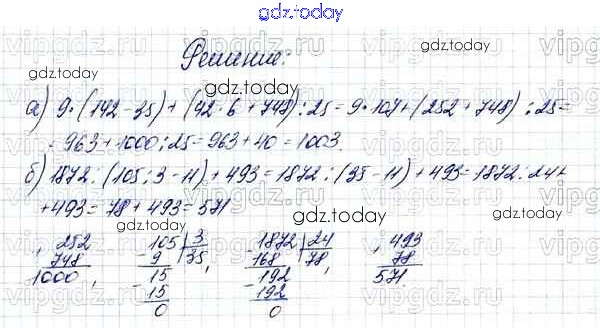 gdz.today
Решение:
а) 9·(142-35)+(42·6+748):25=9·107+(252+748):25=
=963+1000:25=963+40=1003.
б) 1872:(105:3-11)+493=1872:(35-11)+493=1872:24+
+493=78+493=571
+ 252
748
1000,
- 105 | 3
9 | 35,
- 15
15
0
- 1872 | 24
168 | 78,
- 192
192
0
+ 493
78
571.
gdz.today
gdz.today
gdz.today
gdz.today
gdz.today
vipgdz.ru
vipgdz.ru
vipgdz.ru